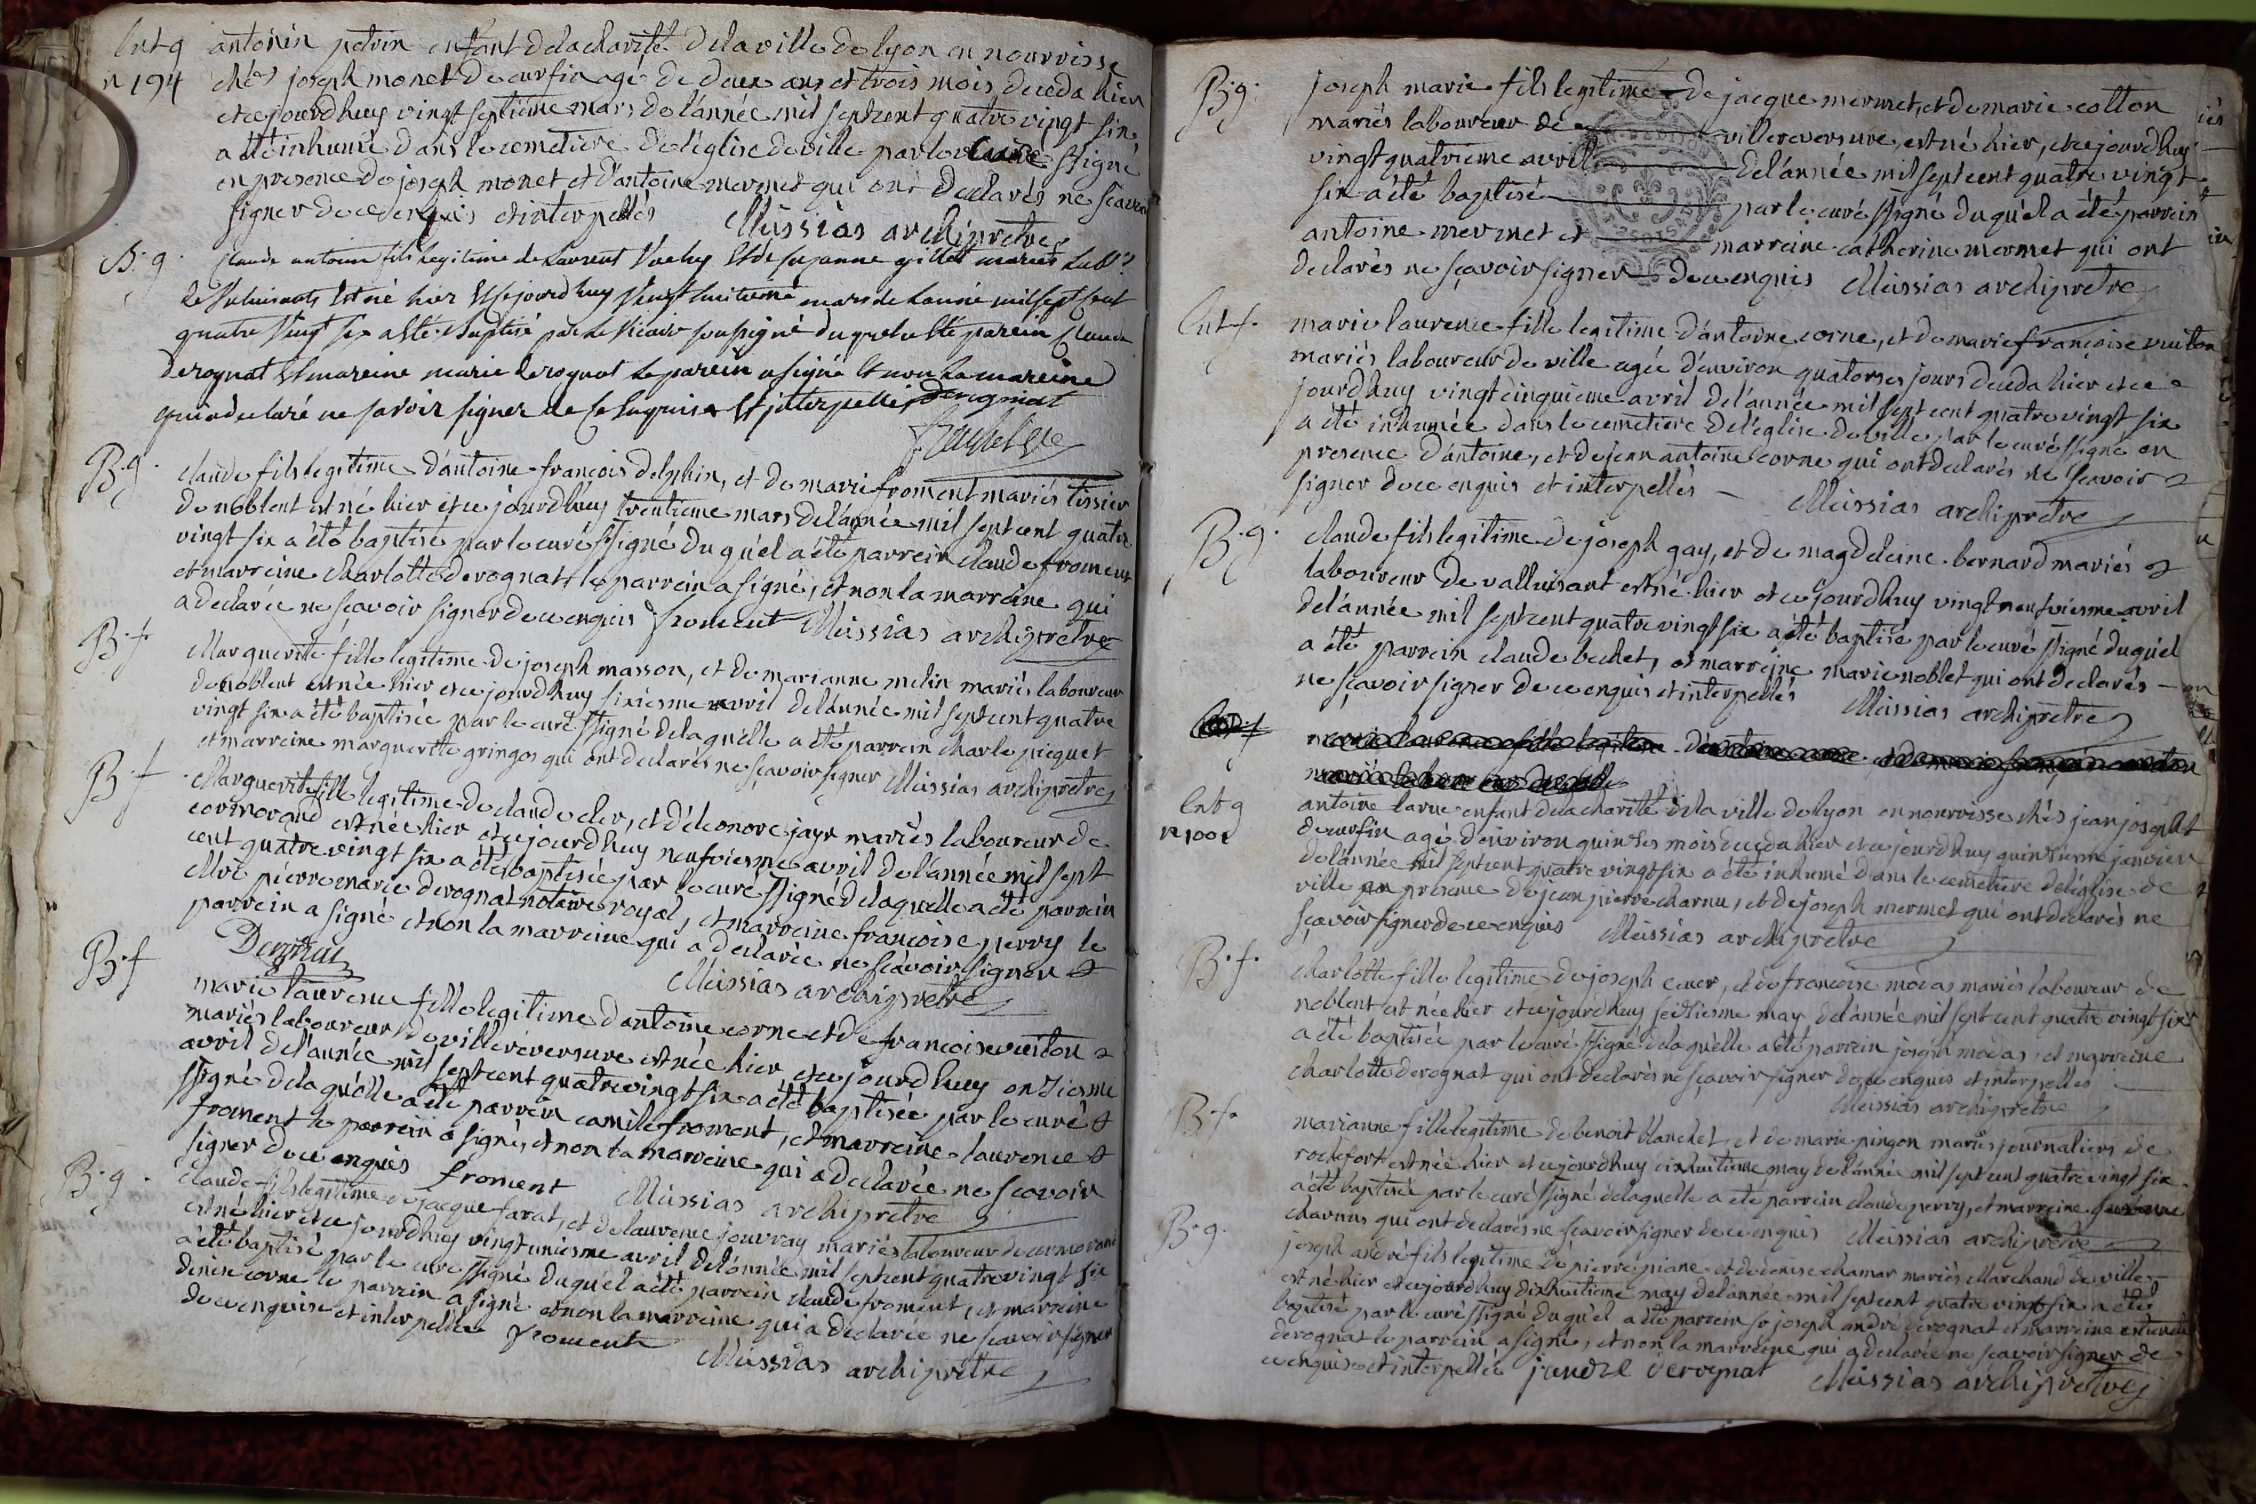 Ent g
n 194
antonin perrin enfant delacharité delaville de lyon en nourrisse
chés joseph monet de curfin agé de deux ans et trois mois deceda hier
et cejourdhuy vingt septiéme mars de l'année mil septcent quatre vingt six
a été inhumé dans le cemetiere de l'église de ville par le curé ssigné
en presence de joseph monet et d'antoine mermet qui ont declarés ne scavoir
signer de ce enquis et interpellés Messias archiprêtre
B. g.
claude antoine fils legitime de Laurent Vuchy et de suzanne gillet mariés Lab.r
de est né hier et cejourdhuy vingt huitieme mars de Lannée mil sept cent
quatre vingt six a été baptisé par le vicaire soussigné duquel a été parein claude
derognat et mareine marie derognat le parein a signé et non la mareine
qui a declaré ne savoir signer de ce enquise et interpellée derognat
B. g.
claude fils legitime d'antoine françois delphin, et de marie froment mariés tissier
de noblent est né hier et ce jourdhuy trentieme mars de l'année mil septcent quatre
vingt six a été baptisé par le curé ssigné duquel a été parrein claude froment
et marreine charlotte derognat, le parrein a signé, et non la marreine qui
a declarée ne scavoir signer de ce enquis froment Messias archiprêtre
B. f.
Marguerite fille legitime de joseph masson, et de marianne melin mariés laboureur
de noblent est née hier et ce jourdhuy sixiesme avril de l'année mil septcent quatre
vingt six a été baptisée par le curé ssigné de laquelle a été parrein charle picquet
et marreine marguerite gringos qui ont declarés ne sçavoir signer Messias archiprêtre
B. f
Marguerite fille legitime de claude cler, et d'eleonore jayr mariés laboureur de
cormorand est née hier et cejourdhuy neufviesme avril de l'année mil sept
cent quatre vingt six a été baptisée par le curé ssigné de laquelle a été parrein
Mre pierre marie derognat notaire royal, et marreine françoise perry le
parrein a signé et non la marreine qui a declarée ne sçavoir signer
Derognat Messias archiprêtre
B. f
marie laurence fille legitime d'antoine corne et de françoise vuiton
mariés laboureur de villereversure est née hier et cejourdhuy onziesme
avril de l'année mil septcent quatre vingt six a été baptisée par le curé
ssigné de laquelle a été parrein camile froment, et marreine laurence
froment le parrein a signé, et non la marreine qui a declarée ne scavoir
signer de ce enquis froment Messias archiprêtre
B. g.
claude fils legitime de jacque farat, et de laurence jouvray mariés laboureur de cormorand
est né hier et ce jourdhuy vingt uniesme avril de l'année mil septcent quatre vingt six
a été baptisé par le curé ssigné duquel a été parrein claude froment, et marreine
denise corne le parrein a signé et non la marreine qui a declarée ne scavoir signer
de ce enquise et interpellée froment
Messias archiprêtre
B. g.
joseph marie fils legitime de jacque mermet, et de marie cotton
mariés laboureur de villereversure, est né hier, et cejourdhuy
vingt quatrieme avril de l'année mil septcent quatre vingt
six a été baptisé par le curé ssigné duquel a été parrein
antoine mermet et marreine catherine mermet qui ont
declarés ne sçavoir signer de ce enquis Messias archiprêtre
Ent. f.
marie laurence fille legitime d'antoine corne, et de marie françoise vuiton
mariés laboureur de ville agée d'environ quatorses jours deceda hier et ce
jourdhuy vingt cinquieme avril de l'année mil septcent quatre vingt six
a été inhumée dans le cemetiere de l'église de ville par le curé ssigné en
presence d'antoine, et de jean antoine corne qui ont declarés ne scavoir
signer de ce enquis et interpellés Messias archiprêtre
B. g.
claude fils legitime de joseph gay, et de magdeleine bernard mariés
laboureur de valluisant est né hier et ce jourdhuy vingt neufviesme avril
de l'année mil septcent quatre vingt six a été baptisé par le curé ssigné duquel
a été parrein claude bechet, et marreine marie noblet qui ont declarés
ne sçavoir signer de ce enquis et interpellés Messias archiprêtre
marie laurence fille legitime d'antoine corne et de marie françoise vuiton
mariés laboureur de ville
Ent g
antoine larue enfant de la charité de la ville de lyon en nourrisse chés jean joseph
de curfin agé d'environ quinses mois deceda hier et cejourdhuy quinsiesme janvier
de l'année mil septcent quatre vingt six a été inhumé dans le cemetiere de l'église de
ville en presence de jean pierre charnu, et de joseph mermet qui ont declarés ne
sçavoir signer de ce enquis Messias archiprêtre
B. f.
charlotte fille legitime de joseph cuer, et de françoise modas mariés laboureur de
noblent est née hier et cejourdhuy seisiesme may de l'année mil septcent quatre vingt six
a été baptisée par le curé ssigné de laquelle a été parrein joseph modas, et marreine
charlotte derognat qui ont declarés ne sçavoir signer de ce enquis et interpellés
Messias archiprêtre
B. f.
marianne fille legitime de benoit blanchet, et de marie pingon mariés journaliers de
rochefort est née hier et cejourdhuy dixhuitieme may de l'année mil septcent quatre vingt six
a été baptisée par le curé ssigné de laquelle a été parrein claude perry, et marreine
charnus qui ont declarés ne sçavoir signer de ce enquis Messias archiprêtre
B. g.
joseph andré fils legitime de pierre piane et de denise chamar mariés Marchand de ville
est né hier et cejourdhuy dixhuitieme may de l'année mil septcent quatre vingt six a été
baptisé par le curé ssigné duquel a été parrein sr joseph andré derognat et marreine
derognat le parrein a signé, et non la marreine qui a declarée ne scavoir signer de
ce enquise et interpellée j andré derognat Messias archiprêtre